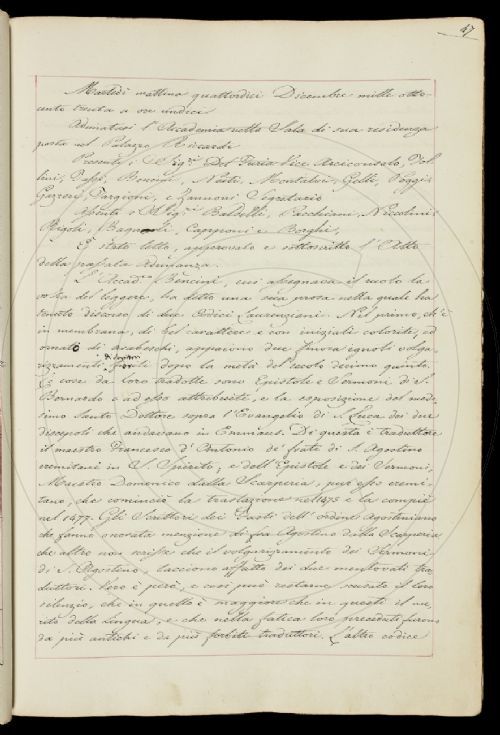 47
Martedì mattina quattordici Dicembre mille otto-
cento trenta a ore undici
Adunatasi l'Accademia nella Sala di sua residenza
posta nel Palazzo Riccardi
Presenti i Sig.ri Del Furia Vice Arciconsolo, Col-
lini, Bencini, Nesti, Montalvi, Gelli, Poggi,
Gazzeri, Targioni, e Zannoni Segretario
Assenti i Sig.ri Baldelli, Pacchiani, Niccolini,
Rigoli, Bagnoli, Capponi e Borghi,
È stato letto, approvato e sottoscritto l'Atto
della passata Adunanza.
L'Accad.co Bencini, cui assegnava il ruolo la
volta del leggere, ha letto una sua prosa nella quale ha
tenuto discorso di due Codici Laurenziani. Nel primo, ch'è
in membrana, di bel carattere e con iniziali colorite, ed
ornato di arabeschi, appaiono due finora ignoti volga-
rizzamenti dopo la metà del secolo decimo quinto.
Le cose da loro tradotte sono Epistole e Sermoni di S.
Bernardo o ad esso attribuite, e la esposizione del mede-
simo Santo Dottore sopra l'Evangelio di S. Luca dei due
discepoli che andavano in Emmaus. Di questa è traduttore
il maestro Francesco d'Antonio de' frati di S. Agostino
eremitani in S. Spirito; e dell'Epistole e dei Sermoni,
Maestro Domenico dalla Scarperia, pur esso eremi-
tano, che cominciò la traslazione nel 1475 e la compiè
nel 1477. Gli Scrittori dei Fasti dell'ordine Agostiniano
che fanno onorata menzione di fra Agostino della Scarperia
che altro non scrisse che il volgarizzamento dei Sermoni
di S. Agostino, tacciono affatto dei due mentovati tra
duttori. Vero è però, e così può restarne scusato il loro
silenzio, che in quello è maggiore che in questi il me
rito della lingua, e che nella fatica loro preceduti furono
da più antichi e da più forbiti traduttori. L'altro codice